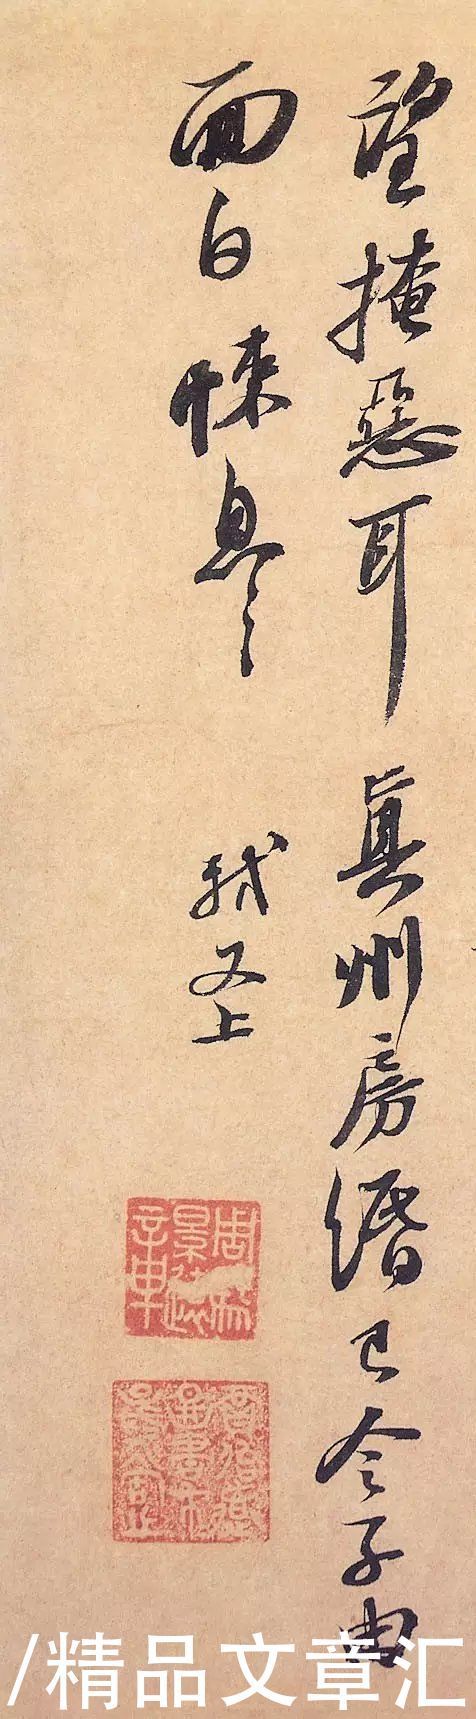 望掩惡耳真州房緡已令子由
面白悚息〻
軾又上
/精品文章汇